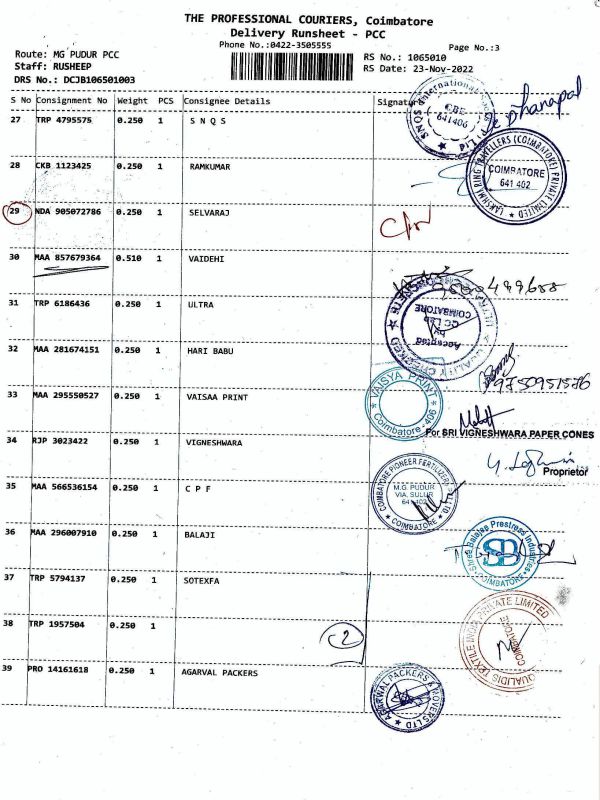 THE PROFESSIONAL COURIERS, Coimbatore
Delivery Runsheet - PCC
Phone No.:0422-3505555
Page No.:3
Route: MG PUDUR PCC
Staff: RUSHEEP
DRS No.: DCJB106501003
RS No.: 1065010
RS Date: 23-Nov-2022
S No Consignment No Weight PCS Consignee Details Signature
27 TRP 4795575 0.250 1 S N Q S
COIMBATORE
641 402
LAKSHMI RING TRAVELLERS (COIMBATORE) PRIVATE LIMITED
CBE
641406
Dhanapal
28 CKB 1123425 0.250 1 RAMKUMAR
29 NDA 905072786 0.250 1 SELVARAJ
30 MAA 857679364 0.510 1 VAIDEHI
31 TRP 6186436 0.250 1 ULTRA
QUALITY CHECKED
Accepted
by
QC Lab
COIMBATORE
32 MAA 281674151 0.250 1 HARI BABU
9750951576
33 MAA 295550527 0.250 1 VAISAA PRINT
VAISYA PRINT
Coimbatore - 406
For SRI VIGNESHWARA PAPER CONES
34 RJP 3023422 0.250 1 VIGNESHWARA
Proprietor
35 MAA 566536154 0.250 1 C P F
COIMBATORE PIONEER FERTILIZER LTD
M.G. PUDUR
VIA. SULUR
641 402
COIMBATORE
36 MAA 296007910 0.250 1 BALAJI
Shree Balajee Prestress Industries
SB
COIMBATORE
37 TRP 5794137 0.250 1 SOTEXFA
38 TRP 1957504 0.250 1
2
QUALIDIS TEXTILE INDIA PRIVATE LIMITED
COIMBATORE
39 PRO 14161618 0.250 1 AGARVAL PACKERS
AGARWAL PACKERS & MOVERS LTD